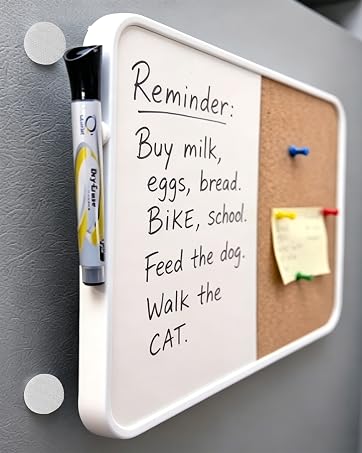 Reminder:
Buy milk,
eggs, bread.
BiKE, school.
Feed the dog.
Walk the
CAT.
Quartet
Dry-Erase